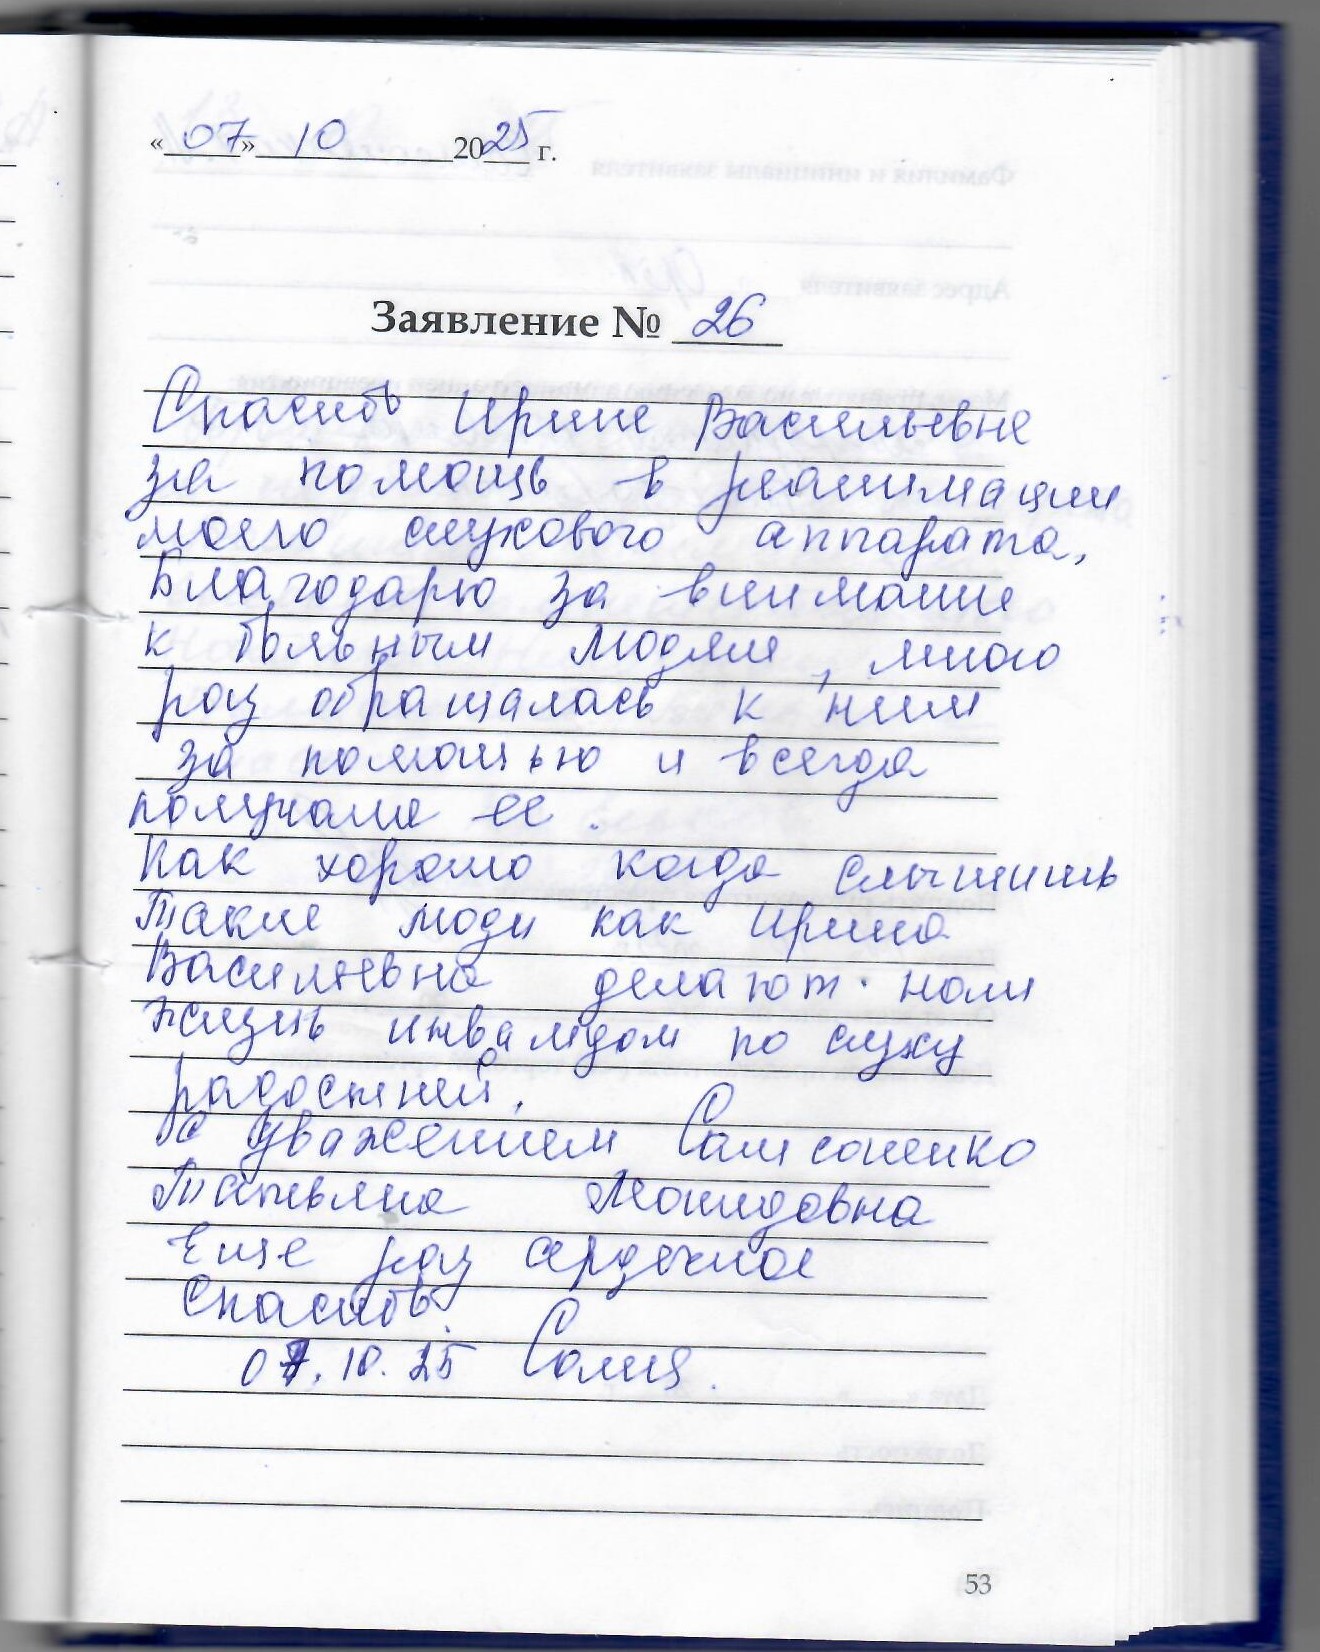 «07» 10 2025 г.
Заявление № 26
Спасибо Ирине Васильевне
за помощь в реанимации
моего слухового аппарата,
Благодарю за внимание
к больным людям, много
раз обращалась к ним
за помощью и всегда
получала ее.
Как хорошо когда слышишь
Такие люди как Ирина
Васильевна делают нам
жизнь инвалидом по слуху
радостней.
С уважением Самсоненко
Татьяна
Еще раз сердечное
Спасибо.
07.10.25
53